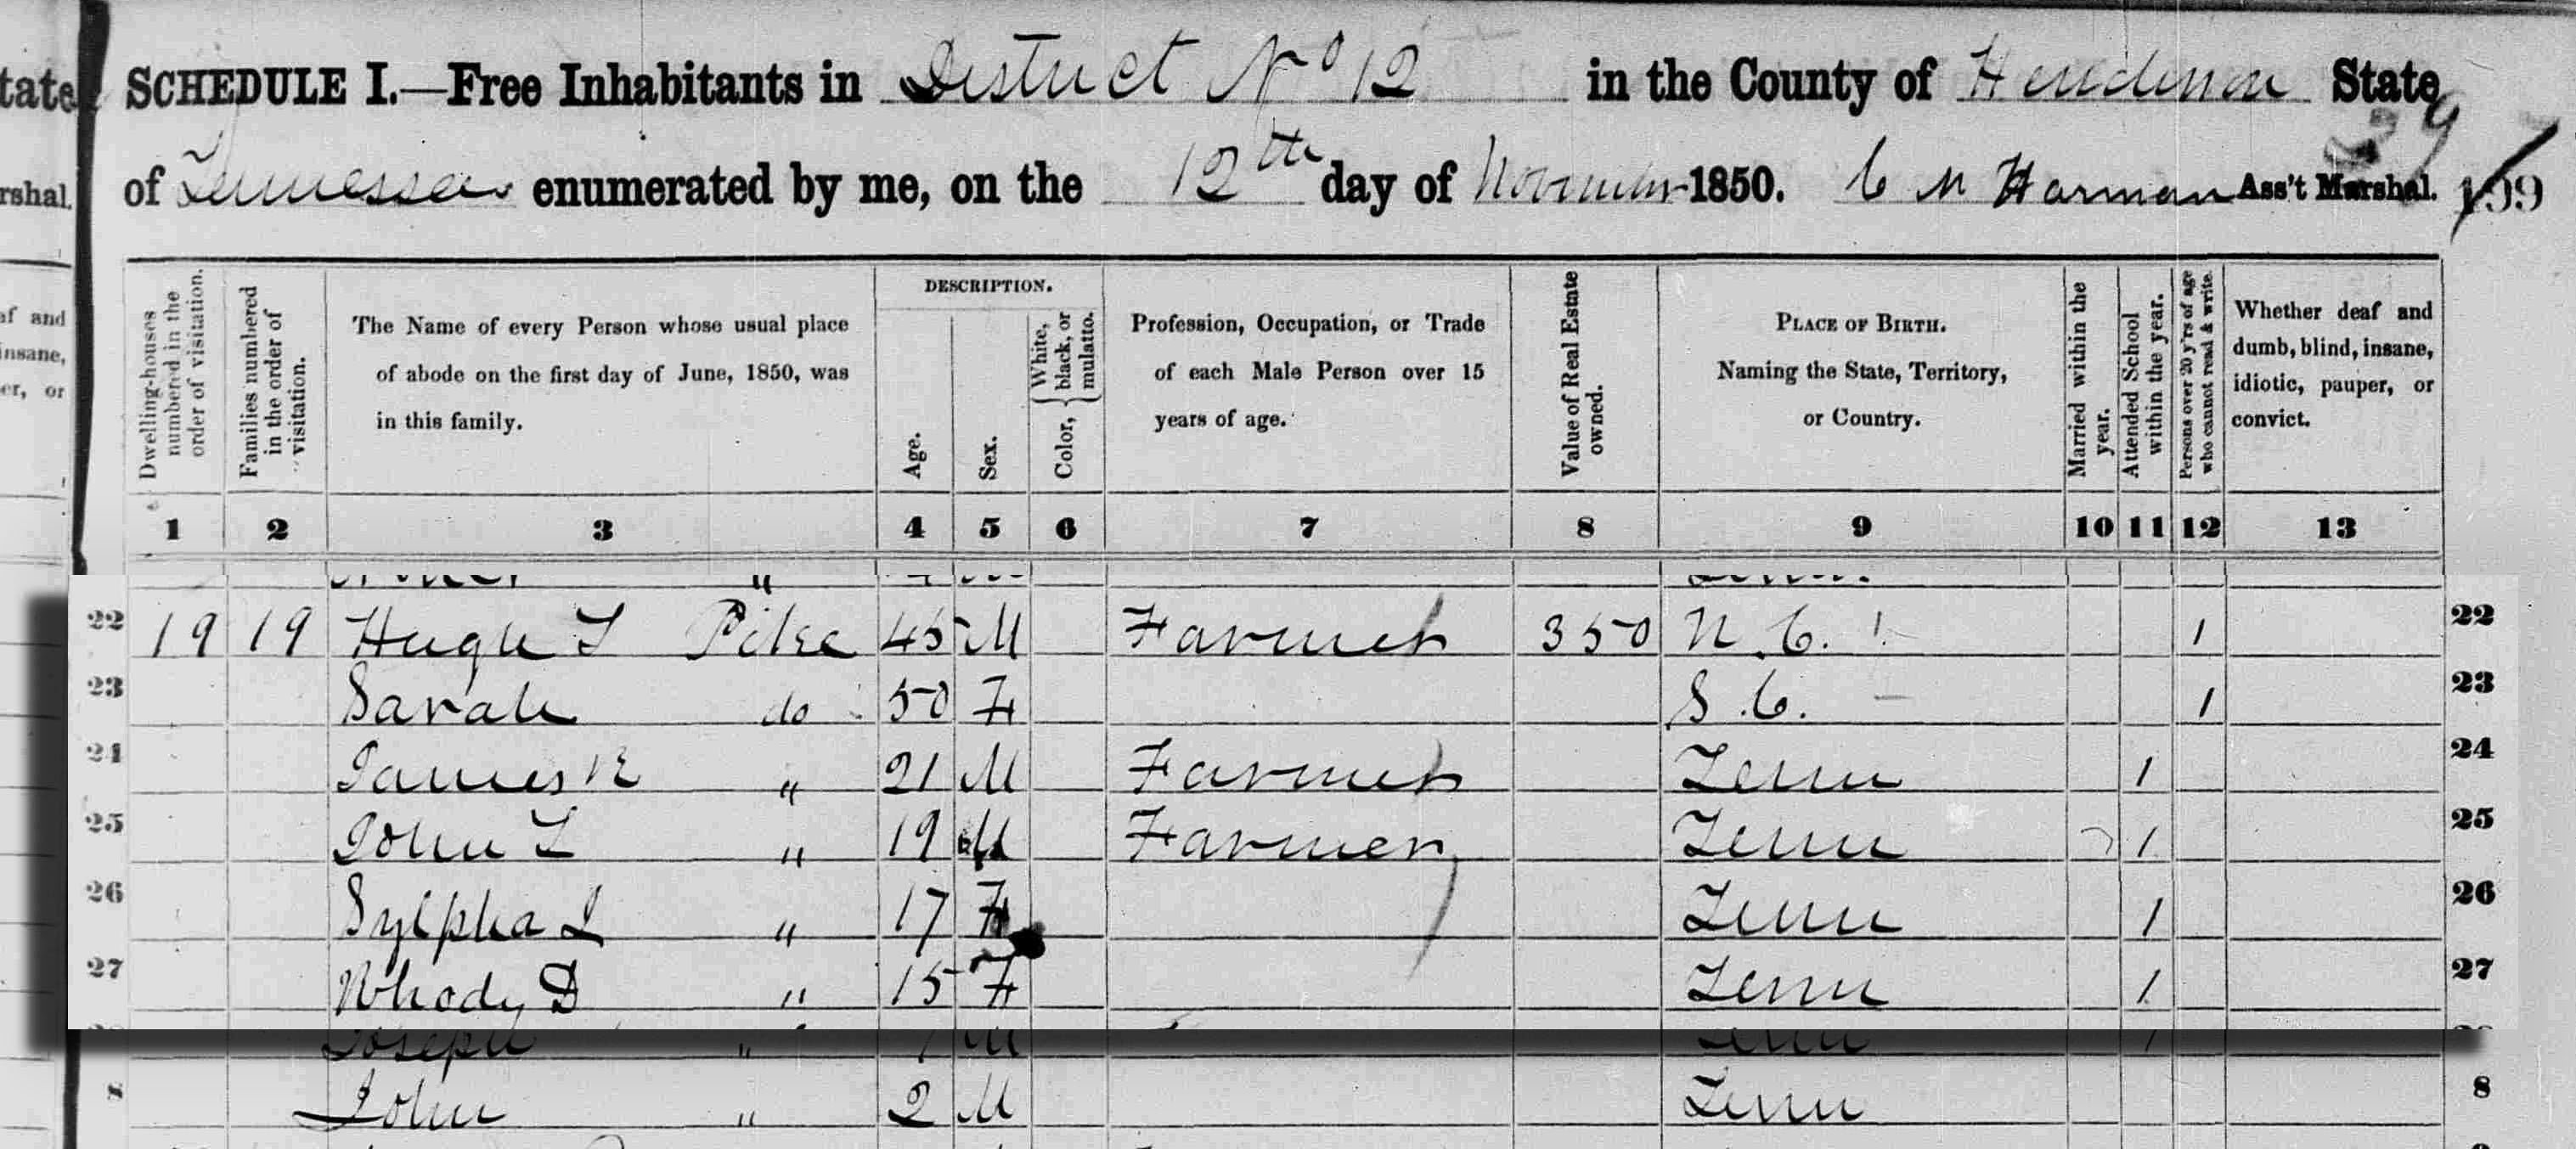 tate
rshal.
af and
insane,
er, or
SCHEDULE I.—Free Inhabitants in District No 12 in the County of Henderson State
of Tennessee enumerated by me, on the 12th day of November 1850. C N Harman Ass't Marshal. 199
Dwelling-houses numbered in the order of visitation.
Families numbered in the order of visitation.
The Name of every Person whose usual place
of abode on the first day of June, 1850, was
in this family.
DESCRIPTION.
Age.
Sex.
Color, { White, black, or mulatto.
Profession, Occupation, or Trade
of each Male Person over 15
years of age.
Value of Real Estate owned.
PLACE OF BIRTH.
Naming the State, Territory,
or Country.
Married within the year.
Attended School within the year.
Persons over 20 y'rs of age who cannot read & write.
Whether deaf and
dumb, blind, insane,
idiotic, pauper, or
convict.
1 2 3 4 5 6 7 8 9 10 11 12 13
22 19 19 Hugh L Pike 45 M Farmer 350 N.C. 1 22
23 Sarah do 50 F S.C. 1 23
24 James R " 21 M Farmer Tenn 1 24
25 John L " 19 M Farmer Tenn 1 25
26 Sylpha L " 17 F Tenn 1 26
27 Rhody D " 15 F Tenn 1 27
Joseph " M Tenn 1
8 John " 2 M Tenn 8